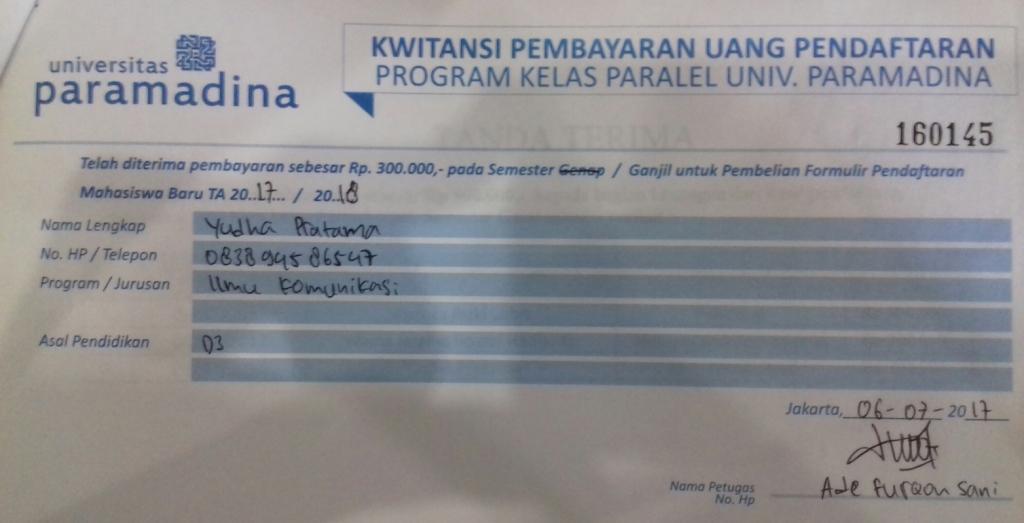 universitas
paramadina
KWITANSI PEMBAYARAN UANG PENDAFTARAN
PROGRAM KELAS PARALEL UNIV. PARAMADINA
160145
Telah diterima pembayaran sebesar Rp. 300.000,- pada Semester Genap / Ganjil untuk Pembelian Formulir Pendaftaran
Mahasiswa Baru TA 20..17... / 20..18
Nama Lengkap Yudha Pratama
No. HP / Telepon 083894586547
Program / Jurusan Ilmu Komunikasi
Asal Pendidikan D3
Jakarta, 06-07-2017
Nama Petugas Ade Furqon Sani
No. Hp